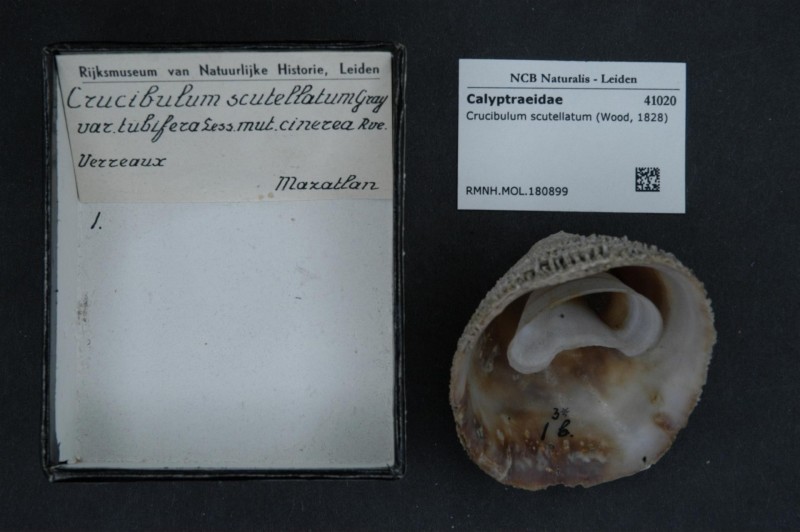 Rijksmuseum van Natuurlijke Historie, Leiden
Crucibulum scutellatum Gray
var. tubifera Less. mut. cinerea Rve.
Verreaux
Mazatlan
1.
NCB Naturalis - Leiden
Calyptraeidae 41020
Crucibulum scutellatum (Wood, 1828)
RMNH.MOL.180899
1 b.